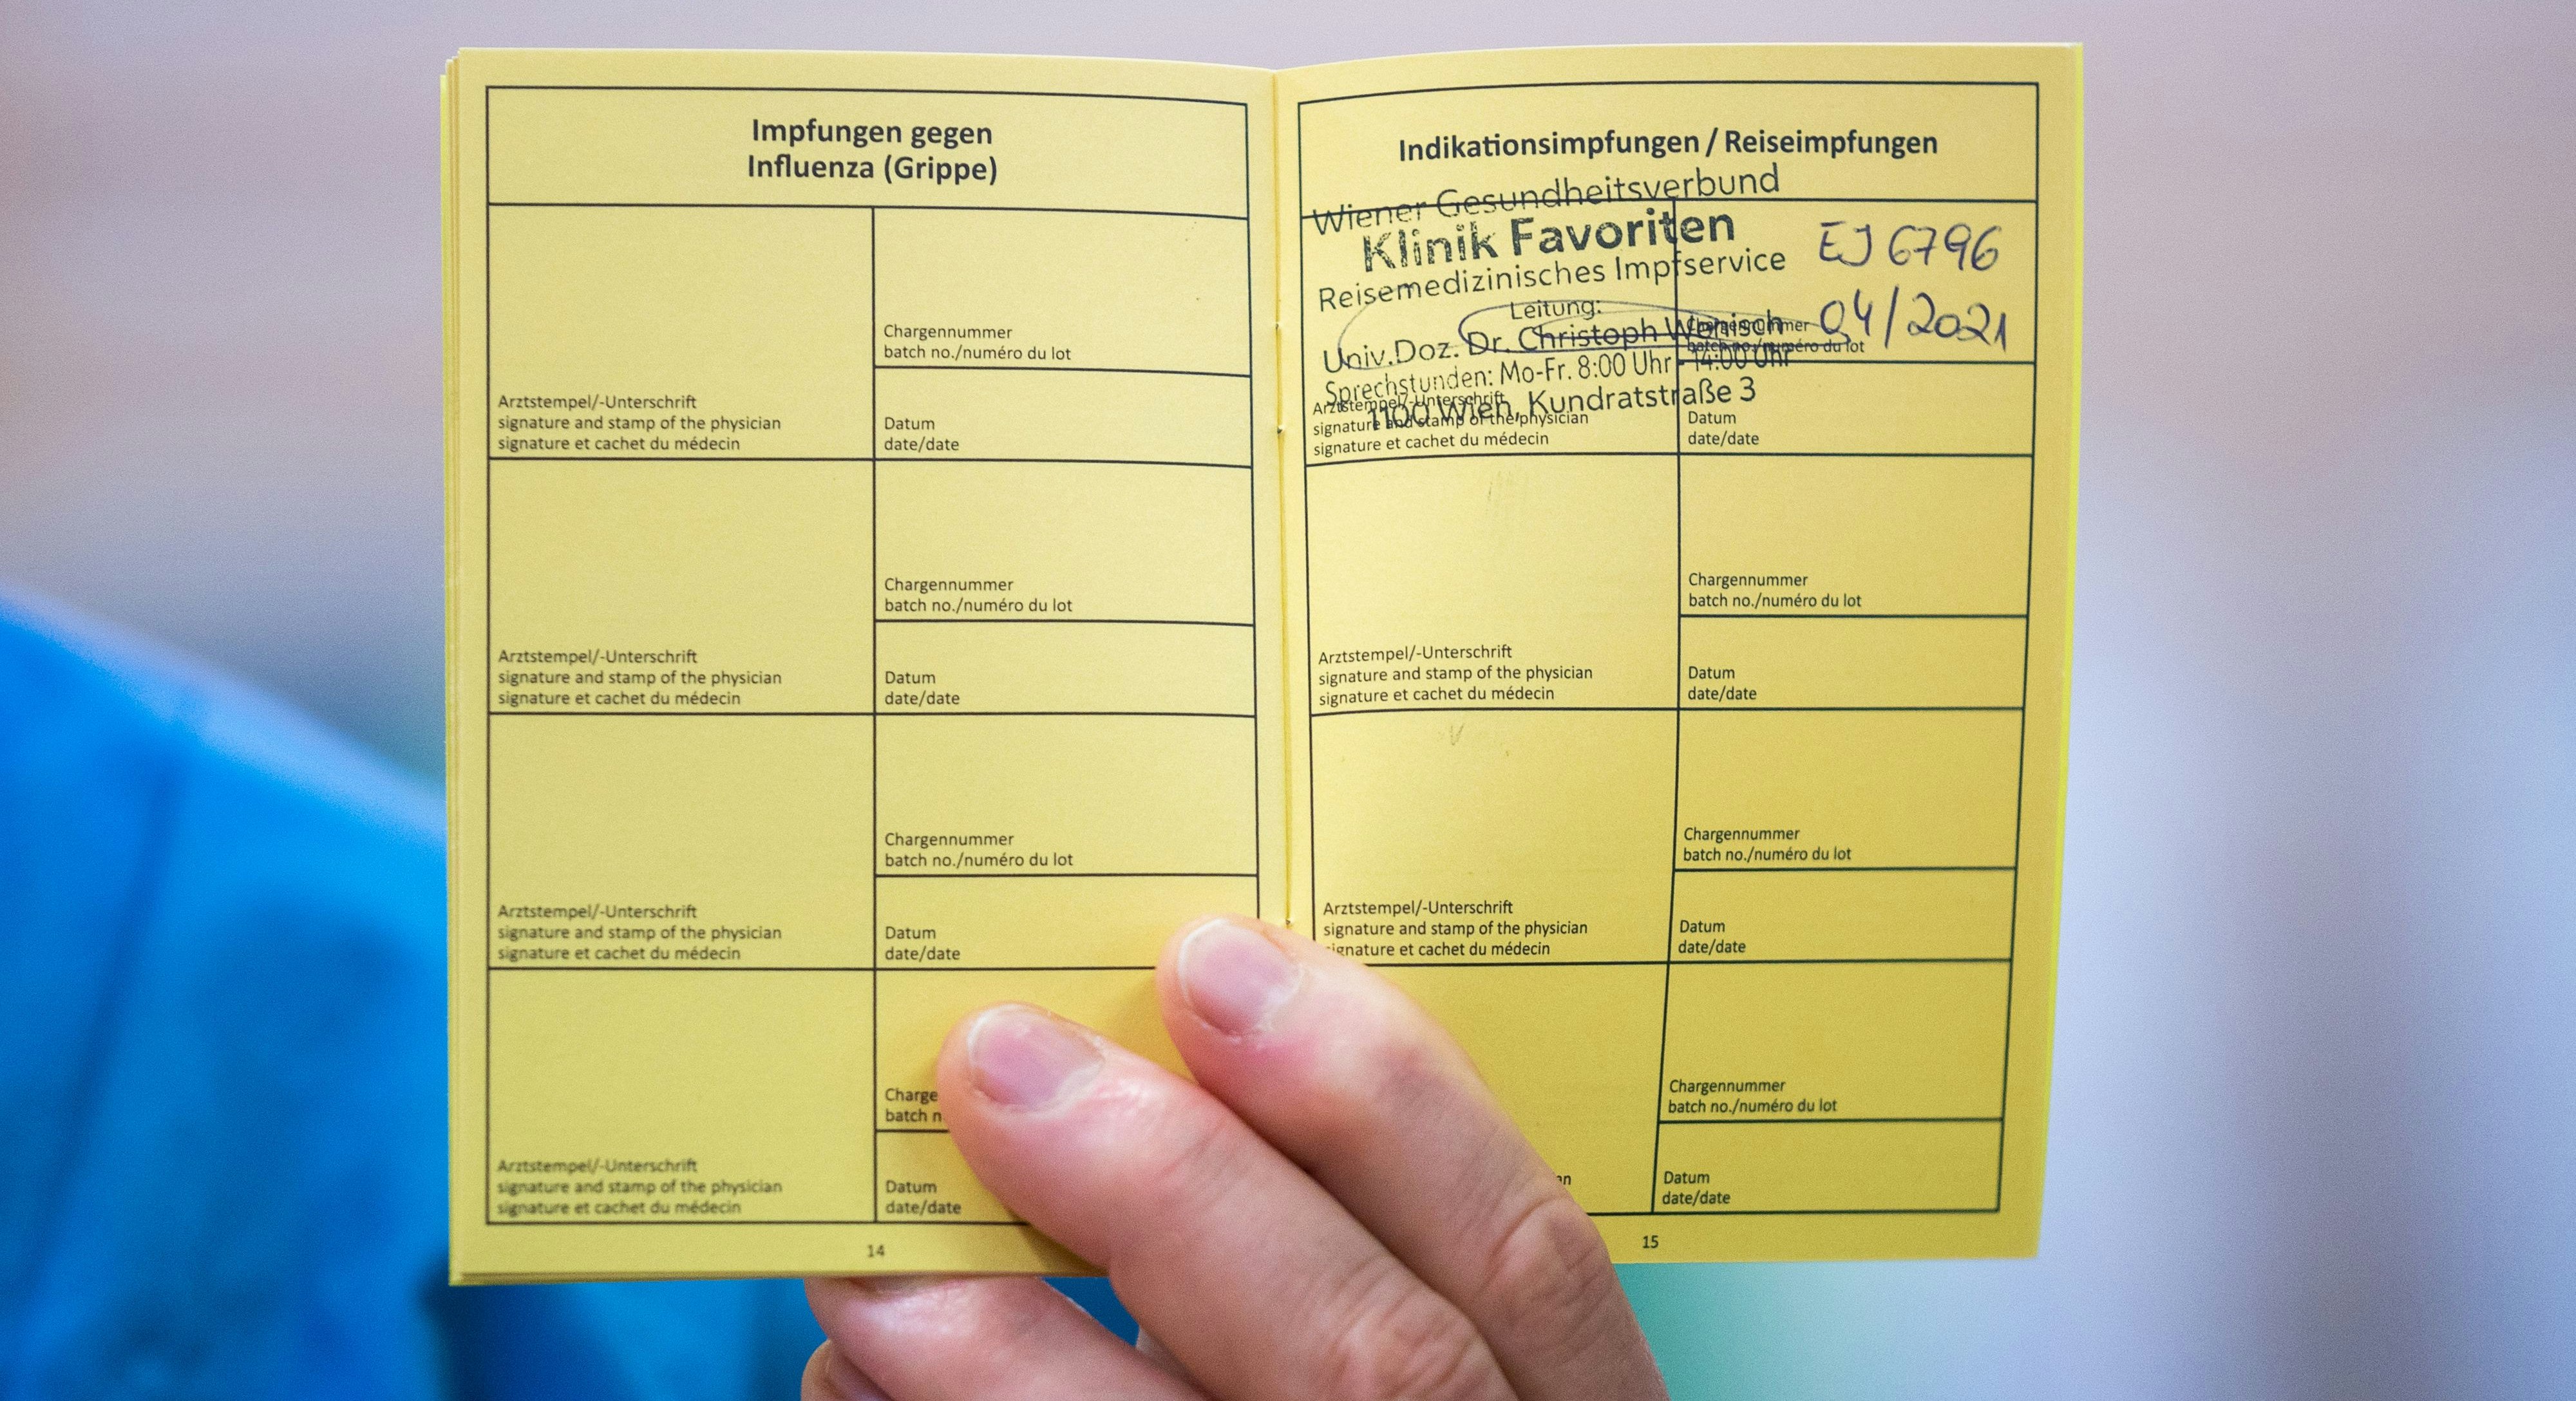 Impfungen gegen
Influenza (Grippe)
Chargennummer
batch no./numéro du lot
Arztstempel/-Unterschrift
signature and stamp of the physician
signature et cachet du médecin
Datum
date/date
Chargennummer
batch no./numéro du lot
Arztstempel/-Unterschrift
signature and stamp of the physician
signature et cachet du médecin
Datum
date/date
Chargennummer
batch no./numéro du lot
Arztstempel/-Unterschrift
signature and stamp of the physician
signature et cachet du médecin
Datum
date/date
Charge
batch n
Arztstempel/-Unterschrift
signature and stamp of the physician
signature et cachet du médecin
Datum
date/date
14
Indikationsimpfungen / Reiseimpfungen
Wiener Gesundheitsverbund
Klinik Favoriten
Reisemedizinisches Impfservice
Leitung:
Univ.Doz. Dr. Christoph Wenisch
Sprechstunden: Mo-Fr. 8:00 Uhr - 14:00 Uhr
1100 Wien, Kundratstraße 3
EJ 6796
04/2021
Chargennummer
batch no./numéro du lot
Arztstempel/-Unterschrift
signature and stamp of the physician
signature et cachet du médecin
Datum
date/date
Chargennummer
batch no./numéro du lot
Arztstempel/-Unterschrift
signature and stamp of the physician
signature et cachet du médecin
Datum
date/date
Chargennummer
batch no./numéro du lot
Arztstempel/-Unterschrift
signature and stamp of the physician
ignature et cachet du médecin
Datum
date/date
Chargennummer
batch no./numéro du lot
Datum
date/date
15